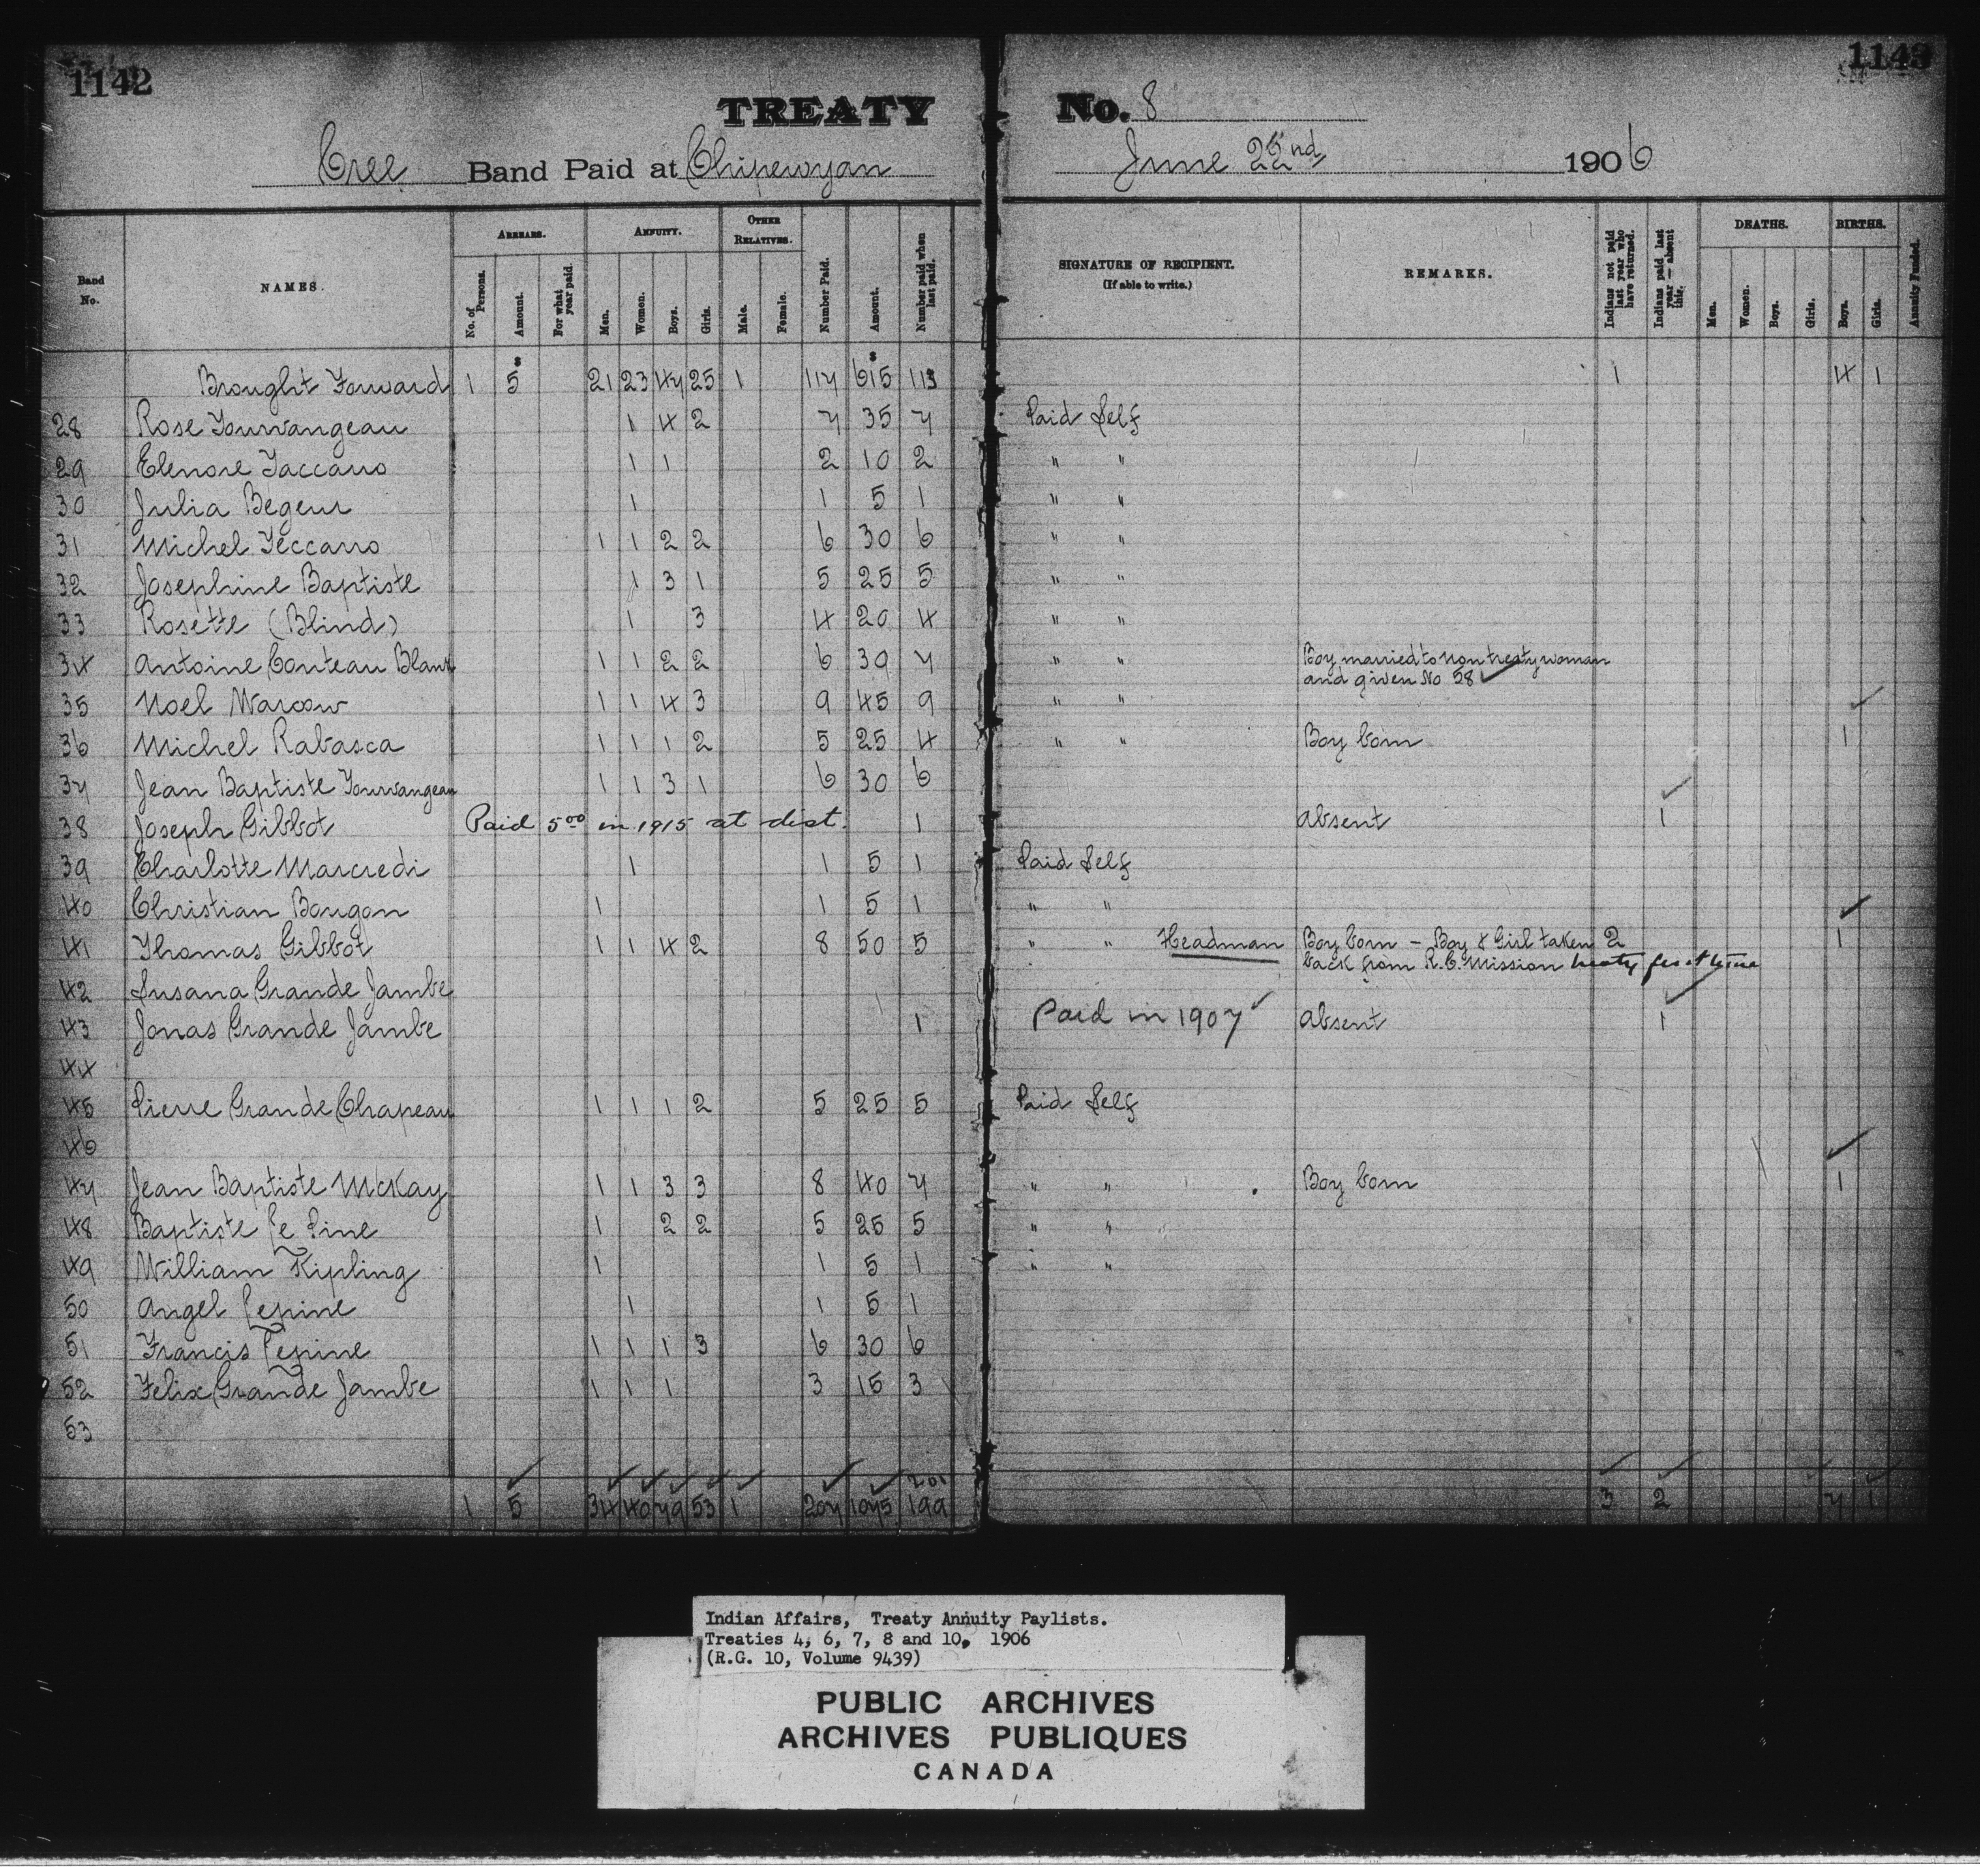 1142
1143
TREATY No. 8
Cree Band Paid at Chipewyan June 22nd 1906
Band No. NAMES. ARREARS. No. of Persons. Amount. For what year paid. ANNUITY. Men. Women. Boys. Girls. OTHER RELATIVES. Male. Female. Number Paid. Amount. Number paid when last paid.
SIGNATURE OF RECIPIENT. (If able to write.) REMARKS. Indians not paid last year who have returned. Indians paid last year — absent this. DEATHS. Men. Women. Boys. Girls. BIRTHS. Boys. Girls. Annuity Funded.
Brought Forward 1 5 21 23 47 25 1 117 615 113 1 4 1
28 Rose 1 4 2 7 35 7 Paid Self
29 Elenore Taccarro 1 1 2 10 2 " "
30 Julia Begeur 1 1 5 1 " "
31 Michel Teccarro 1 1 2 2 6 30 6 " "
32 Josephine Baptiste 1 3 1 5 25 5 " "
33 Rosette (Blind) 1 3 4 20 4 " "
34 Antoine Couteau Blank 1 1 2 2 6 30 7 " " Boy married to non treaty woman
and given No 58 ✓
35 Noel Warcow 1 1 4 3 9 45 9 " " ✓
36 Michel Rabasca 1 1 1 2 5 25 4 " " Boy born 1
37 Jean Baptiste 1 1 3 1 6 30 6 ✓
38 Joseph Gibbot Paid 5.00 in 1915 at dist. 1 Absent 1
39 Charlotte Marcredi 1 1 5 1 Paid Self
40 Christian Bougon 1 1 5 1 " " ✓
41 Thomas Gibbot 1 1 4 2 8 50 5 " " Headman Boy born - Boy & Girl taken 2 1
back from R.C. Mission treaty first time
42 Susana Grande Jambe ✓
43 Jonas Grande Jambe 1 Paid in 1907 ✓ Absent 1
44
45 Pierre Grande Chapeau 1 1 1 2 5 25 5 Paid Self
46 ✓
47 Jean Baptiste McKay 1 1 3 3 8 40 7 " " Boy born 1
48 Baptiste Le Pine 1 2 2 5 25 5 " "
49 William Kipling 1 1 5 1 " "
50 Angel Lepine 1 1 5 1
51 Francis Lepine 1 1 1 3 6 30 6
52 Felix Grande Jambe 1 1 1 3 15 3
53
201
1 5 34 40 79 53 1 207 1075 199 3 2 7 1
Indian Affairs, Treaty Annuity Paylists.
Treaties 4, 6, 7, 8 and 10, 1906
(R.G. 10, Volume 9439)
PUBLIC ARCHIVES
ARCHIVES PUBLIQUES
CANADA